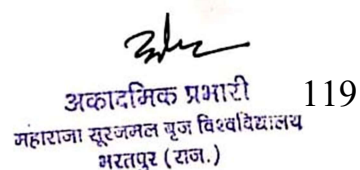 अकादमिक प्रभारी
119
महाराजा सूरजमल बृज विश्वविद्यालय
भरतपुर (राज.)